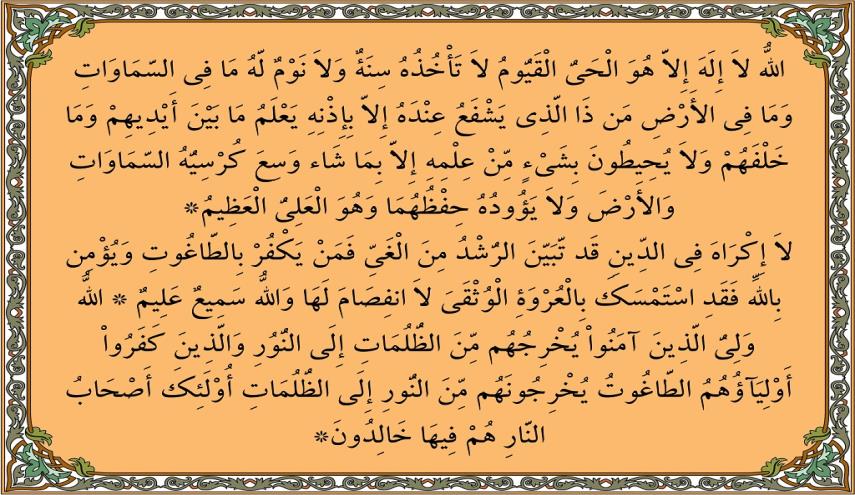 اللهُ لاَ إِلَهَ إِلاَّ هُوَ الْحَىُّ الْقَيُّومُ لاَ تَأْخُذُهُ سِنَةٌ وَلاَ نَوْمٌ لَّهُ مَا فِى السَّمَاوَاتِ
وَمَا فِى الأَرْضِ مَن ذَا الَّذِى يَشْفَعُ عِنْدَهُ إِلاَّ بِإِذْنِهِ يَعْلَمُ مَا بَيْنَ أَيْدِيهِمْ وَمَا
خَلْفَهُمْ وَلاَ يُحِيطُونَ بِشَىْءٍ مِّنْ عِلْمِهِ إِلاَّ بِمَا شَاء وَسِعَ كُرْسِيُّهُ السَّمَاوَاتِ
وَالأَرْضَ وَلاَ يَؤُودُهُ حِفْظُهُمَا وَهُوَ الْعَلِىُّ الْعَظِيمُ*
لاَ إِكْرَاهَ فِى الدِّينِ قَد تَّبَيَّنَ الرُّشْدُ مِنَ الْغَىِّ فَمَنْ يَكْفُرْ بِالطَّاغُوتِ وَيُؤْمِن
بِاللهِ فَقَدِ اسْتَمْسَكَ بِالْعُرْوَةِ الْوُثْقَىَ لاَ انفِصَامَ لَهَا وَاللهُ سَمِيعٌ عَلِيمٌ * اللهُ
وَلِىُّ الَّذِينَ آمَنُواْ يُخْرِجُهُم مِّنَ الظُّلُمَاتِ إِلَى النُّوُرِ وَالَّذِينَ كَفَرُواْ
أَوْلِيَآؤُهُمُ الطَّاغُوتُ يُخْرِجُونَهُم مِّنَ النُّورِ إِلَى الظُّلُمَاتِ أُوْلَئِكَ أَصْحَابُ
النَّارِ هُمْ فِيهَا خَالِدُونَ*